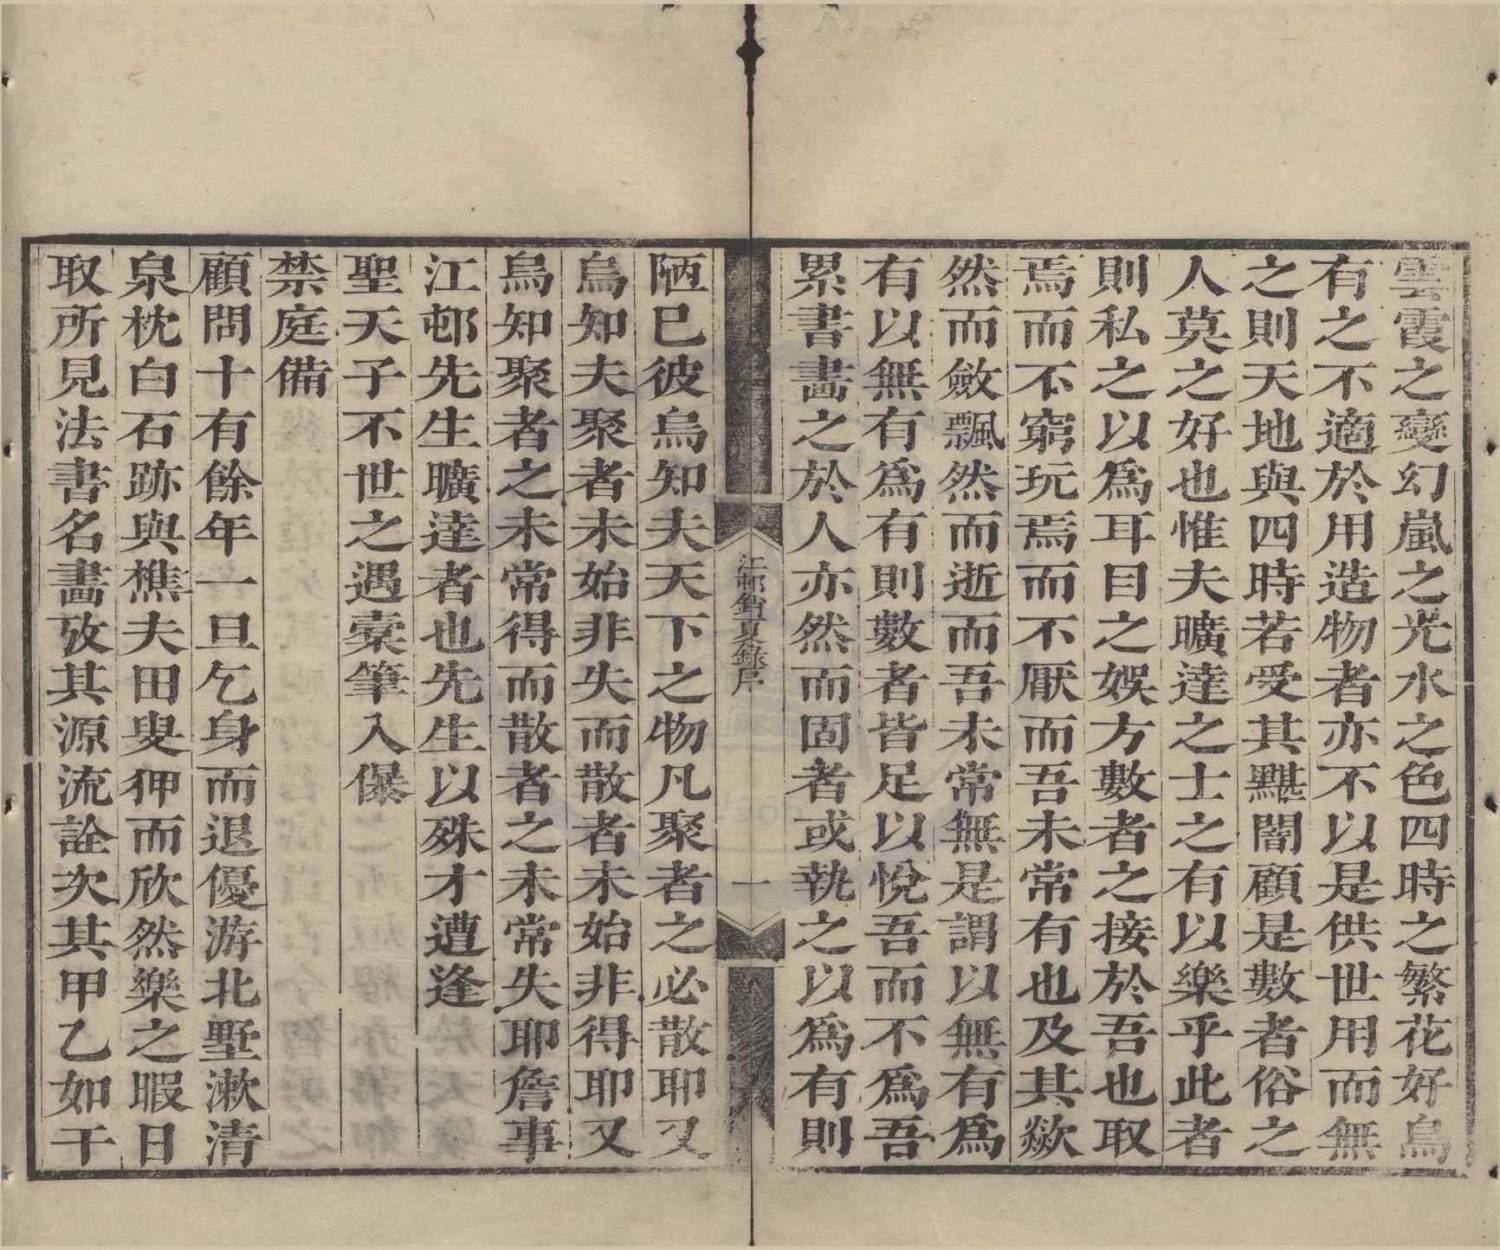 雲霞之變幻嵐之光水之色四時之繁花好鳥
有之不適於用造物者亦不以是供世用而無
之則天地與四時若受其黮闇顧是數者俗之
人莫之好也惟夫曠達之士之有以樂乎此者
則私之以爲耳目之娛方數者之接於吾也取
焉而不窮玩焉而不厭而吾未常有也及其歘
然而斂飄然而逝而吾未常無是謂以無有爲
有以無有爲有則數者皆足以悅吾而不爲吾
累書畵之於人亦然而固者或執之以爲有則
江邨銷夏錄序
一
陋巳彼烏知夫天下之物凡聚者之必散耶又
烏知夫聚者未始非失而散者未始非得耶又
烏知聚者之未常得而散者之未常失耶詹事
江邨先生曠達者也先生以殊才遭逢
聖天子不世之遇橐筆入儤
禁庭備
顧問十有餘年一旦乞身而退優游北墅漱清
泉枕白石跡與樵夫田叟狎而欣然樂之暇日
取所見法書名畵攷其源流詮次其甲乙如干